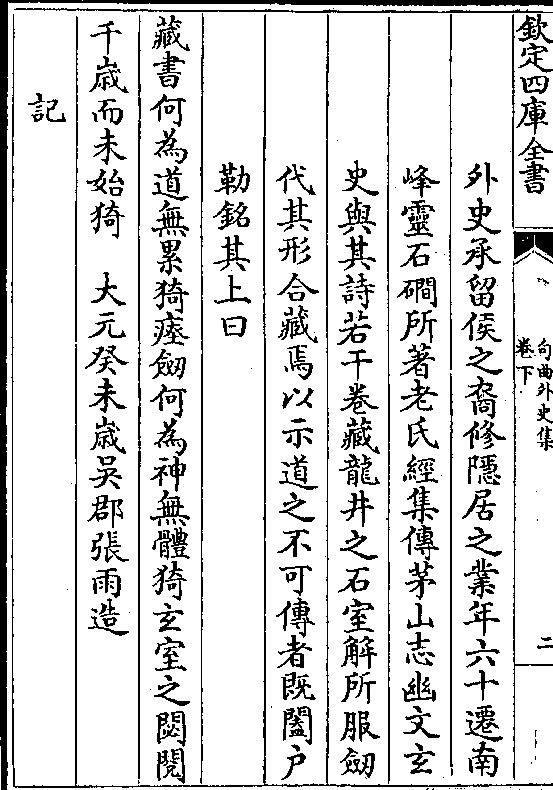 欽定四庫全書
句曲外史集
卷下
二
外史承留侯之裔修隱居之業年六十遷南
峰靈石磵所著老氏經集傳茅山志幽文玄
史與其詩若干卷藏龍井之石室解所服劒
代其形合藏焉以示道之不可傳者既闔户
勒銘其上曰
藏書何為道無累猗瘞劒何為神無體猗玄室之閟閲
千歳而未始猗　大元癸未歳吳郡張雨造
記